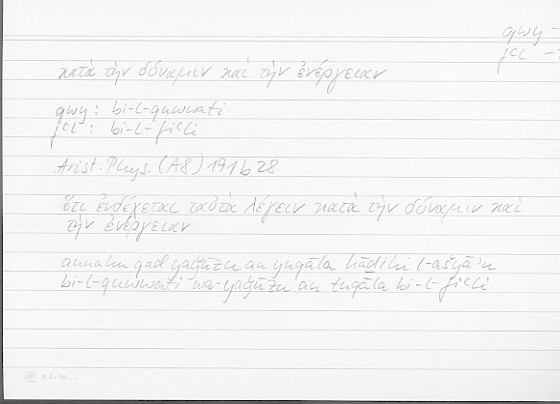 qwy –
fʿl –
κατὰ τὴν δύναμιν καὶ τὴν ἐνέργειαν
qwy : bi-l-quwwati
fʿl : bi-l-fiʿli
Arist. Phys. (A8) 191 b 28
ὅτι ἐνδέχεται ταὐτὰ λέγειν κατὰ τὴν δύναμιν καὶ
τὴν ἐνέργειαν
annahu qad yaǧūzu an yuqāla hāḏihi l-ašyāʾu
bi-l-quwwati wa-yaǧūzu an tuqāla bi-l-fiʿli